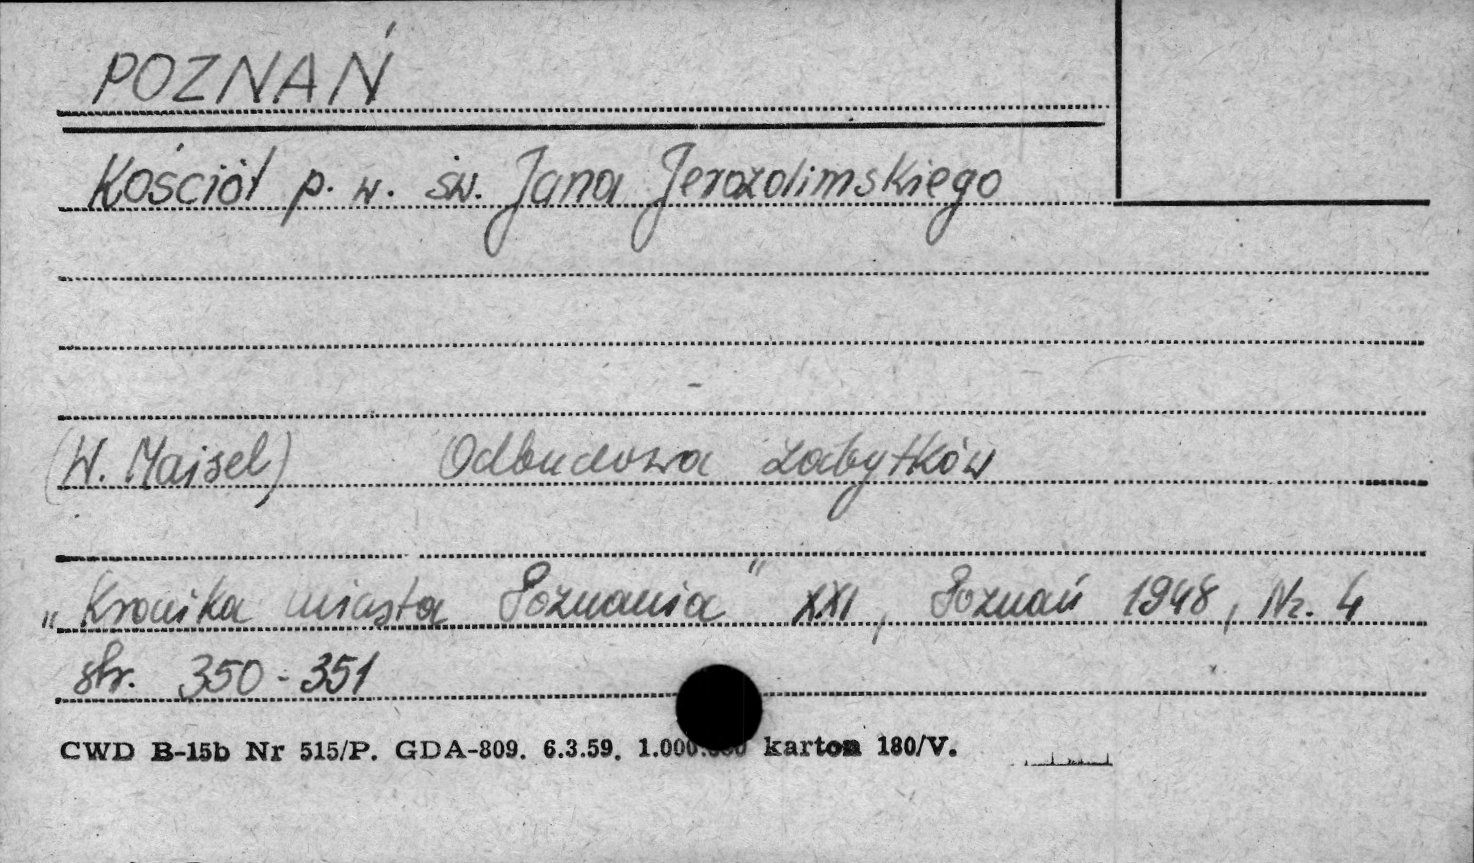 POZNAŃ
Kościół p. w. św. Jana Jerozolimskiego
(W. Maisel) Odbudowa zabytków
"Kronika miasta Poznania" XXI, Poznań 1948, Nr. 4
str. 350-351
CWD B-15b Nr 515/P. GDA-809. 6.3.59. 1.000.000 karton 180/V.